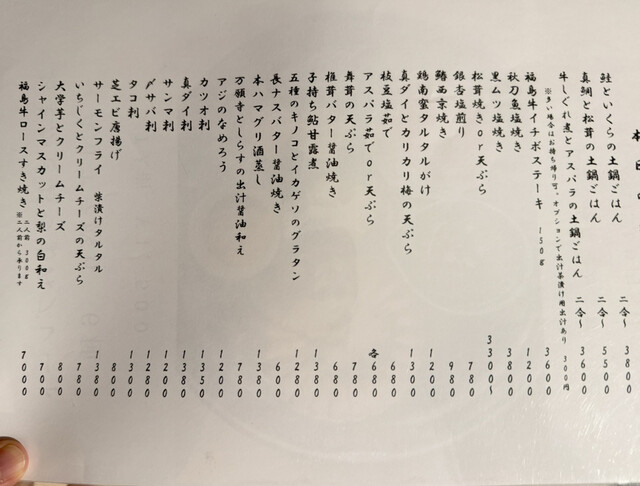 本日の
鮭といくらの土鍋ごはん 二合〜 3800
真鯛と松茸の土鍋ごはん 二合〜 5500
牛しぐれ煮とアスパラの土鍋ごはん 二合〜 3600
※多い場合はお持ち帰り可。オプションで出汁茶漬け用出汁あり 300円
福島牛イチボステーキ 150g 3600
秋刀魚塩焼き 1200
黒ムツ塩焼き 3800
松茸焼きor天ぷら 3300〜
銀杏塩煎り 780
鰆西京焼き 980
鶏南蛮タルタルがけ 1200
真ダイとカリカリ梅の天ぷら 1300
枝豆塩茹で 680
アスパラ茹でor天ぷら 各680
舞茸の天ぷら 780
椎茸バター醤油焼き 680
子持ち鮎甘露煮 1380
五種のキノコとイカゲソのグラタン 1280
長ナスバター醤油焼き 600
本ハマグリ酒蒸し 1380
万願寺としらすの出汁醤油和え 780
アジのなめろう 1200
カツオ刺 1350
真ダイ刺 1380
サンマ刺 1280
〆サバ刺 1280
タコ刺 1200
芝エビ唐揚げ 800
サーモンフライ 柴漬けタルタル 1380
いちじくとクリームチーズの天ぷら 780
大学芋とクリームチーズ 800
シャインマスカットと梨の白和え 700
福島牛ロースすき焼き 二人前 300g 7000
※二人前から承ります